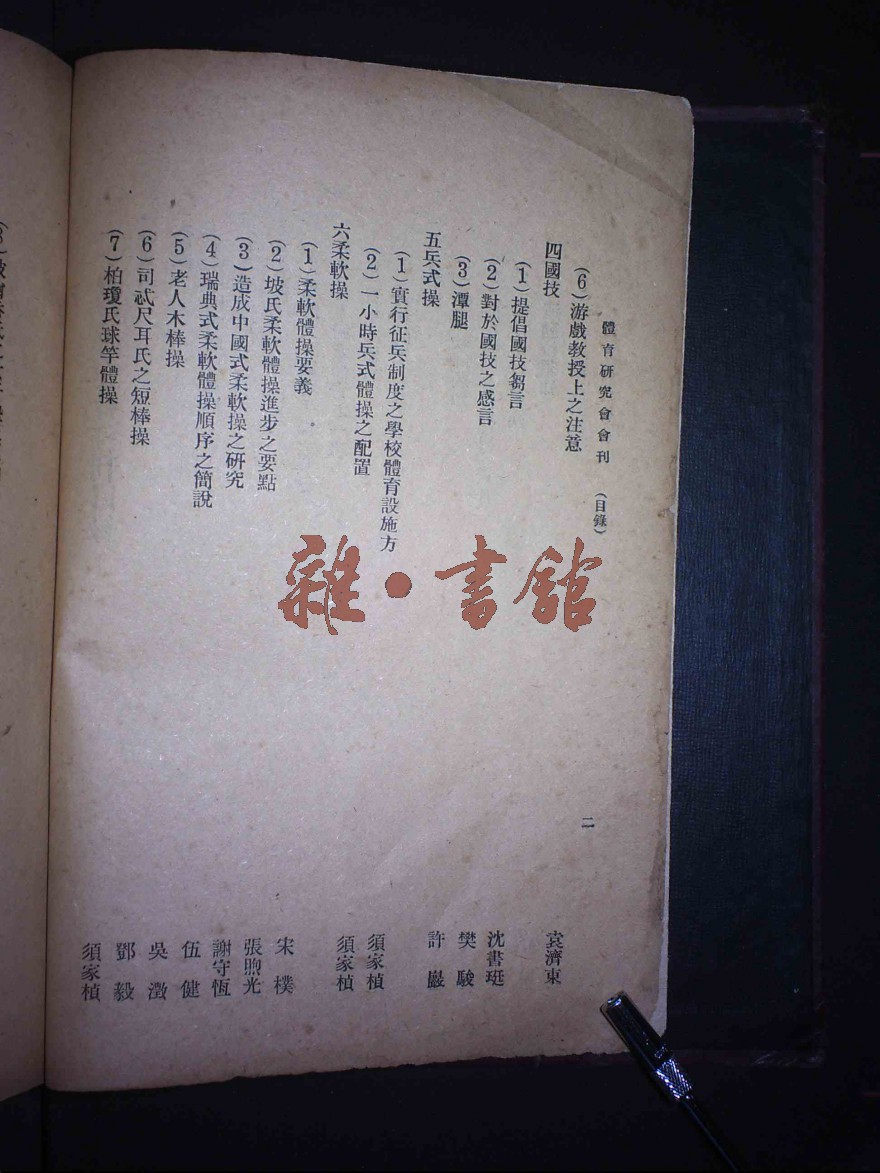 體育研究會會刊 （目錄） 二
（6）游戲教授上之注意 袁濟東
四國技
（1）提倡國技芻言 沈書珽
（2）對於國技之感言 樊駿
（3）潭腿 許巖
五兵式操
（1）實行征兵制度之學校體育設施方 須家楨
（2）一小時兵式體操之配置 須家楨
六柔軟操
（1）柔軟體操要義 宋樸
（2）坡氏柔軟體操進步之要點 張煦光
（3）造成中國式柔軟操之研究 謝守恆
（4）瑞典式柔軟體操順序之簡說 伍健
（5）老人木棒操 吳澂
（6）司忒尺耳氏之短棒操 鄧毅
（7）柏瓊氏球竿體操 須家楨
雜·書館